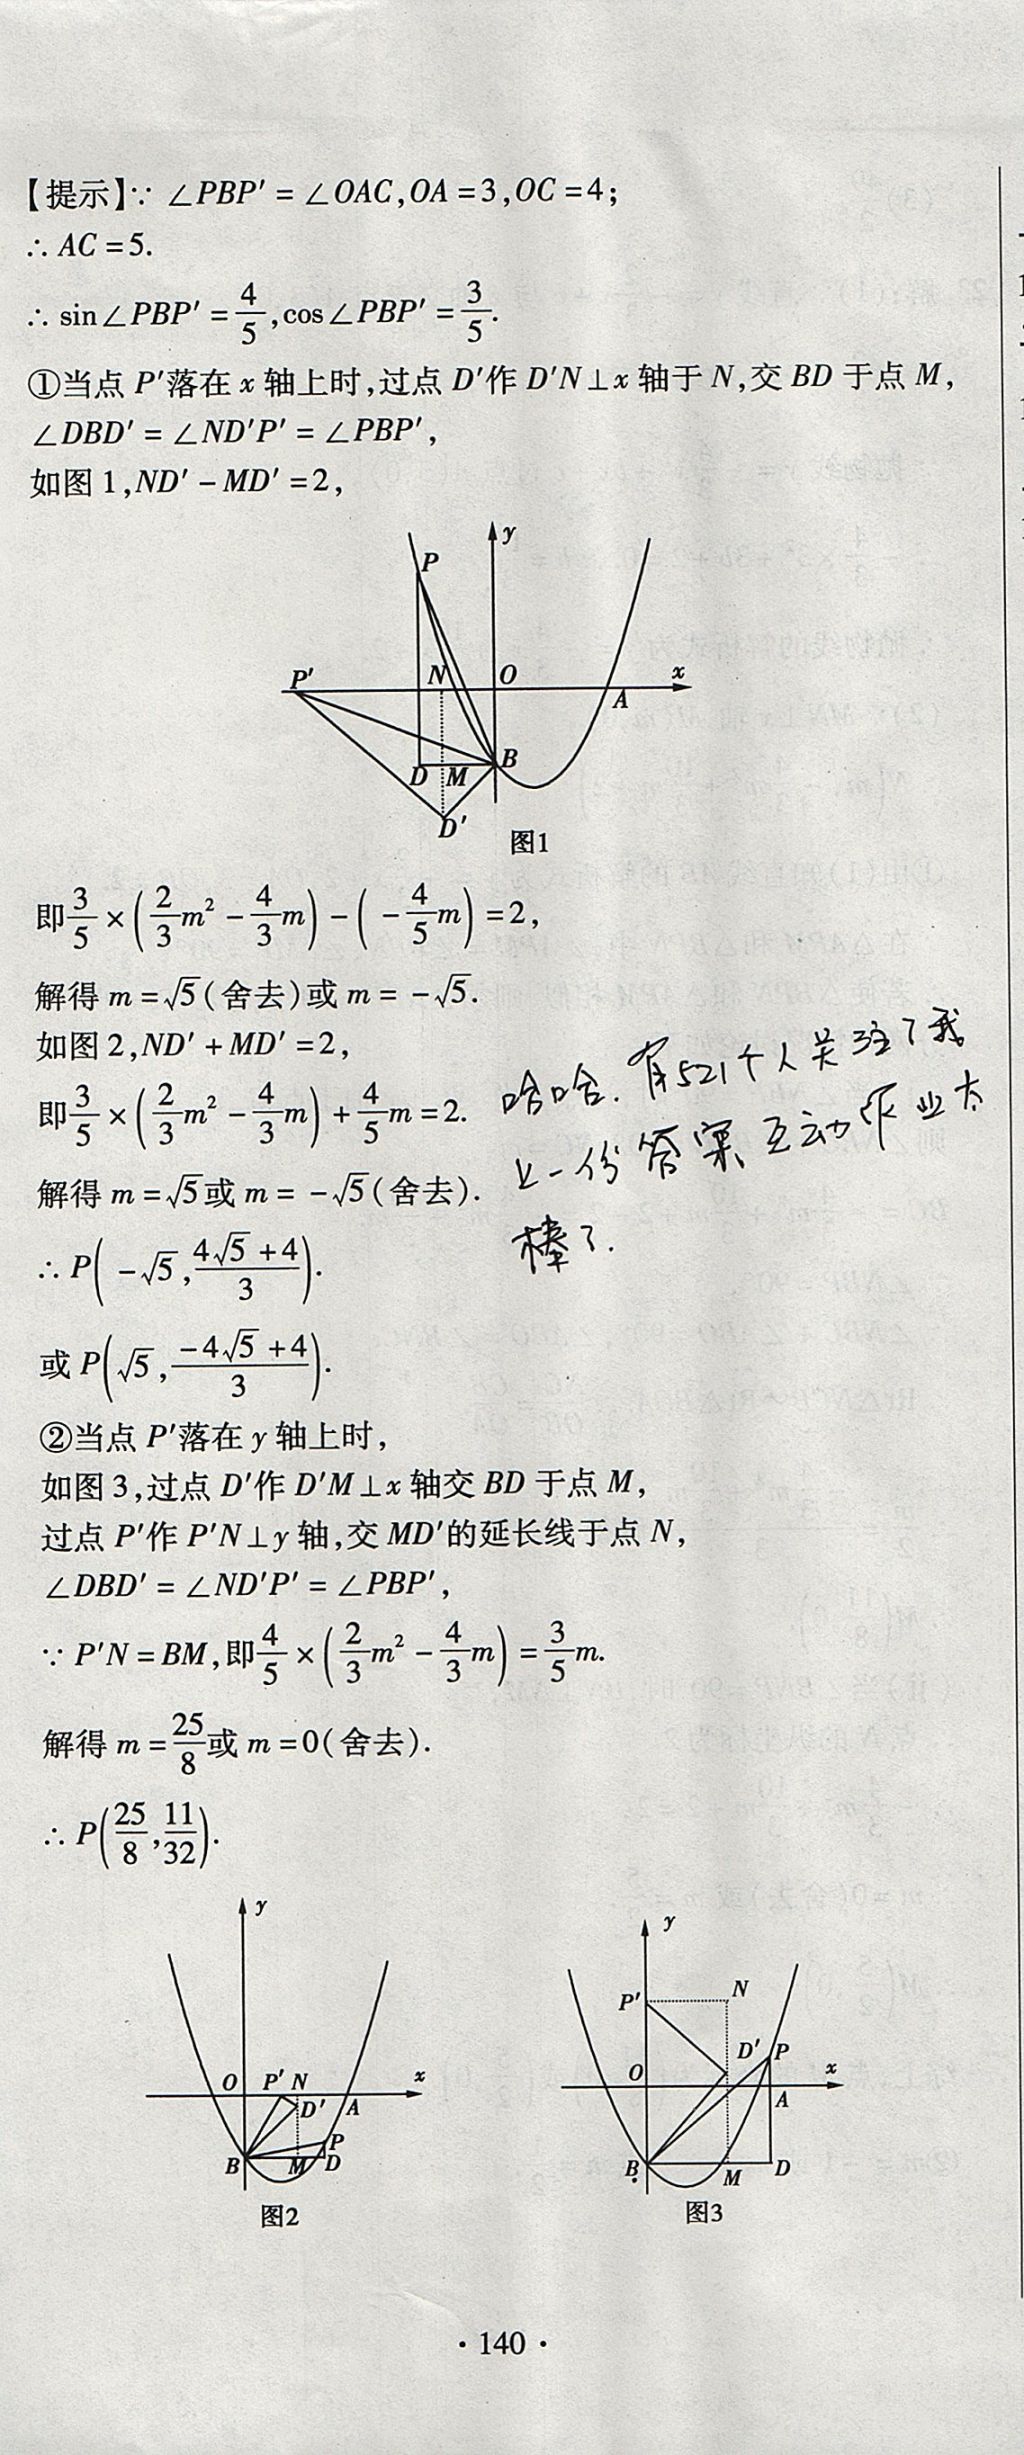 【提示】∵ ∠PBP′ = ∠OAC,OA = 3,OC = 4;
∴ AC = 5.
∴ sin∠PBP′ = 4/5,cos∠PBP′ = 3/5.
①当点 P′落在 x 轴上时,过点 D′作 D′N⊥x 轴于 N,交 BD 于点 M,
∠DBD′ = ∠ND′P′ = ∠PBP′,
如图 1,ND′ - MD′ = 2,
y
P
P′ N O x
A
D M B
D′
图1
即3/5 × (2/3m² - 4/3m) - ( - 4/5m) = 2,
解得 m = √5(舍去)或 m = - √5.
如图 2,ND′ + MD′ = 2,
即3/5 × (2/3m² - 4/3m) + 4/5m = 2.
解得 m = √5或 m = - √5(舍去).
哈哈.有521个人关注了我
上一份答案、互动作业太
棒了.
∴ P( - √5, (4√5 + 4)/3).
或 P(√5, (-4√5 + 4)/3).
②当点 P′落在 y 轴上时,
如图 3,过点 D′作 D′M⊥x 轴交 BD 于点 M,
过点 P′作 P′N⊥y 轴,交 MD′的延长线于点 N,
∠DBD′ = ∠ND′P′ = ∠PBP′,
∵ P′N = BM,即4/5 × (2/3m² - 4/3m) = 3/5m.
解得 m = 25/8或 m = 0(舍去).
∴ P(25/8, 11/32).
y
O P′ N x
D′ A
P
B M D
图2
y
P′ N
D′ P
O x
A
B M D
图3
· 140 ·